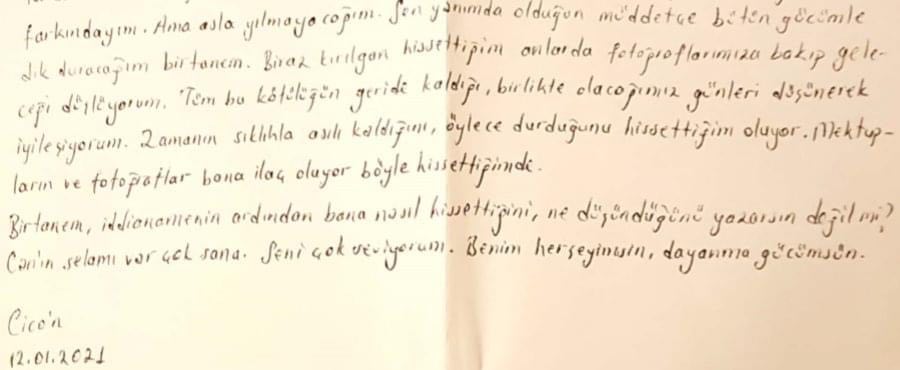 farkındayım. Ama asla yılmayacağım. Sen yanımda olduğun müddetçe bütün gücümle
dik duracağım birtanem. Biraz kırılgan hissettiğim anlarda fotoğraflarımıza bakıp gele-
ceği düşlüyorum. Tüm bu kötülüğün geride kaldığı, birlikte olacağımız günleri düşünerek
iyileşiyorum. Zamanın sıklıkla asılı kaldığını, öylece durduğunu hissettiğim oluyor. Mektup-
ların ve fotoğraflar bana ilaç oluyor böyle hissettiğimde.
Birtanem, iddianamenin ardından bana nasıl hissettiğini, ne düşündüğünü yazarsın değil mi?
Can'ın selamı var çok sana. Seni çok seviyorum. Benim herşeyimsin, dayanma gücümsün.
Cico'n
12.01.2021